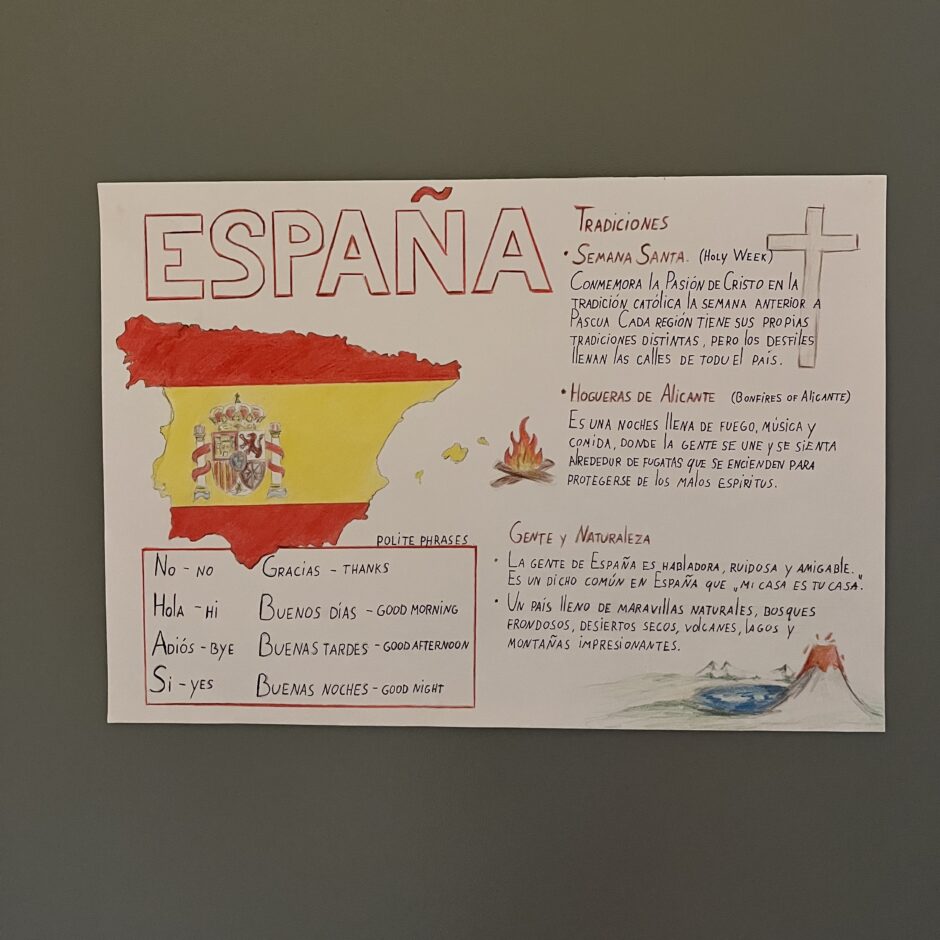 ESPAÑA
TRADICIONES
• SEMANA SANTA. (HOLY WEEK)
CONMEMORA LA PASIÓN DE CRISTO EN LA
TRADICIÓN CATÓLICA LA SEMANA ANTERIOR A
PASCUA CADA REGIÓN TIENE SUS PROPIAS
TRADICIONES DISTINTAS, PERO LOS DESFILES
LLENAN LAS CALLES DE TODU EL PAÍS.
• HOGUERAS DE ALICANTE (BONFIRES OF ALICANTE)
ES UNA NOCHES LLENA DE FUEGO, MÚSICA Y
COMIDA, DONDE LA GENTE SE UNE Y SE SIENTA
ALREDEDUR DE FUGATAS QUE SE ENCIENDEN PARA
PROTEGERSE DE LOS MALOS ESPIRITUS.
POLITE PHRASES
NO - NO GRACIAS - THANKS
HOLA - HI BUENOS DÍAS - GOOD MORNING
ADIÓS - BYE BUENAS TARDES - GOOD AFTERNOON
SI - YES BUENAS NOCHES - GOOD NIGHT
GENTE Y NATURALEZA
• LA GENTE DE ESPAÑA ES HABLADORA, RUIDOSA Y AMIGABLE.
ES UN DICHO COMÚN EN ESPAÑA QUE „MI CASA ES TU CASA".
• UN PAÍS LLENO DE MARAVILLAS NATURALES, BOSQUES
FRONDOSOS, DESIERTOS SECOS, VOLCANES, LAGOS Y
MONTAÑAS IMPRESIONANTES.